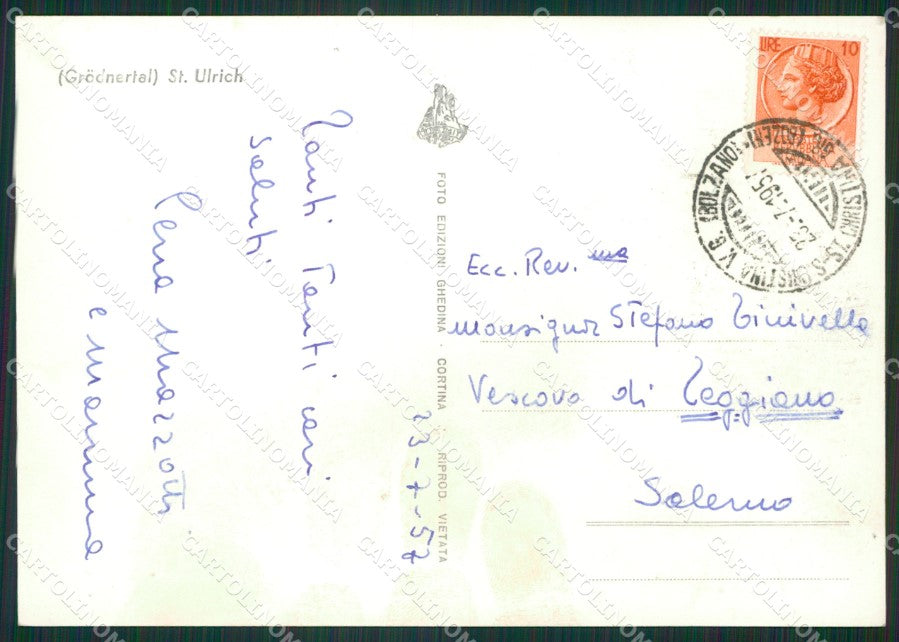 (Grödnertal) St. Ulrich
Tanti Tanti cari
saluti
Pena Mazzotti
e mamma
23-7-57
FOTO EDIZIONI GHEDINA - CORTINA - RIPROD. VIETATA
LIRE 10
S. CRISTINA V. G. (BOLZANO)
ST. CHRISTINA GR. (BOZEN)
23-7-1957
Ecc. Rev. ma
Monsignor Stefano Tinivella
Vescovo di Teggiano
Salerno
CARTOLINOMANIA